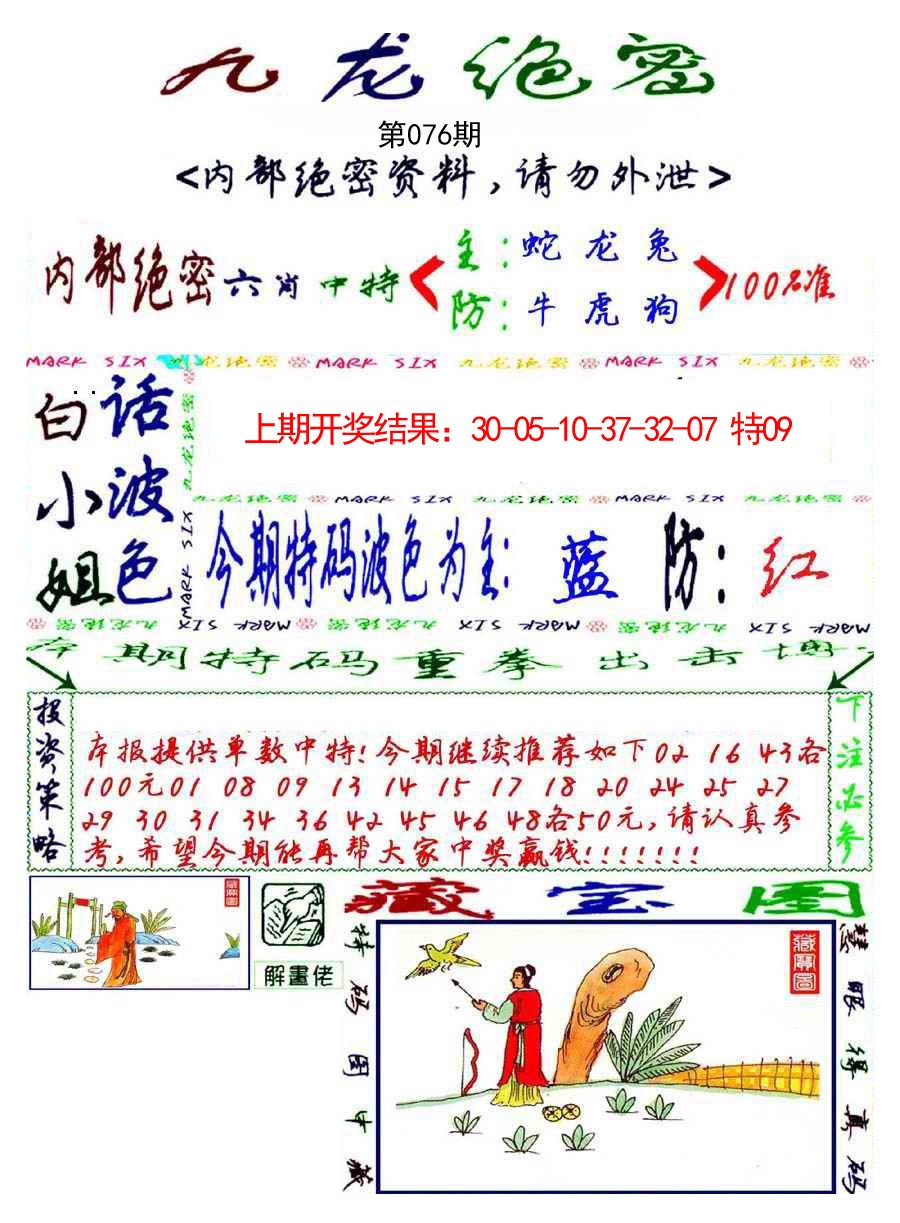 九龙绝密
第076期
<内部绝密资料,请勿外泄>
内部绝密六肖中特
主:蛇龙兔
防:牛虎狗
100%准
MARK SIX 九龙绝密 MARK SIX 九龙绝密 MARK SIX 九龙绝密
白小姐
话波色
九龙绝密
MARK SIX
上期开奖结果：30-05-10-37-32-07 特09
九龙绝密 MARK SIX 九龙绝密 MARK SIX 九龙绝密
今期特码波色为主: 蓝 防: 红
九龙绝密 MARK SIX 九龙绝密 MARK SIX 九龙绝密 MARK SIX
本期特码重拳出击
投资策略
本报提供单数中特!今期继续推荐如下02 16 43各
100元01 08 09 13 14 15 17 18 20 24 25 27
29 30 31 34 36 42 45 46 48各50元,请认真参
考,希望今期能再帮大家中奖赢钱!!!!!!!
下注必参
藏宝图
藏宝图
解畫佬
特码图中藏
藏寶圖
慧眼得真码